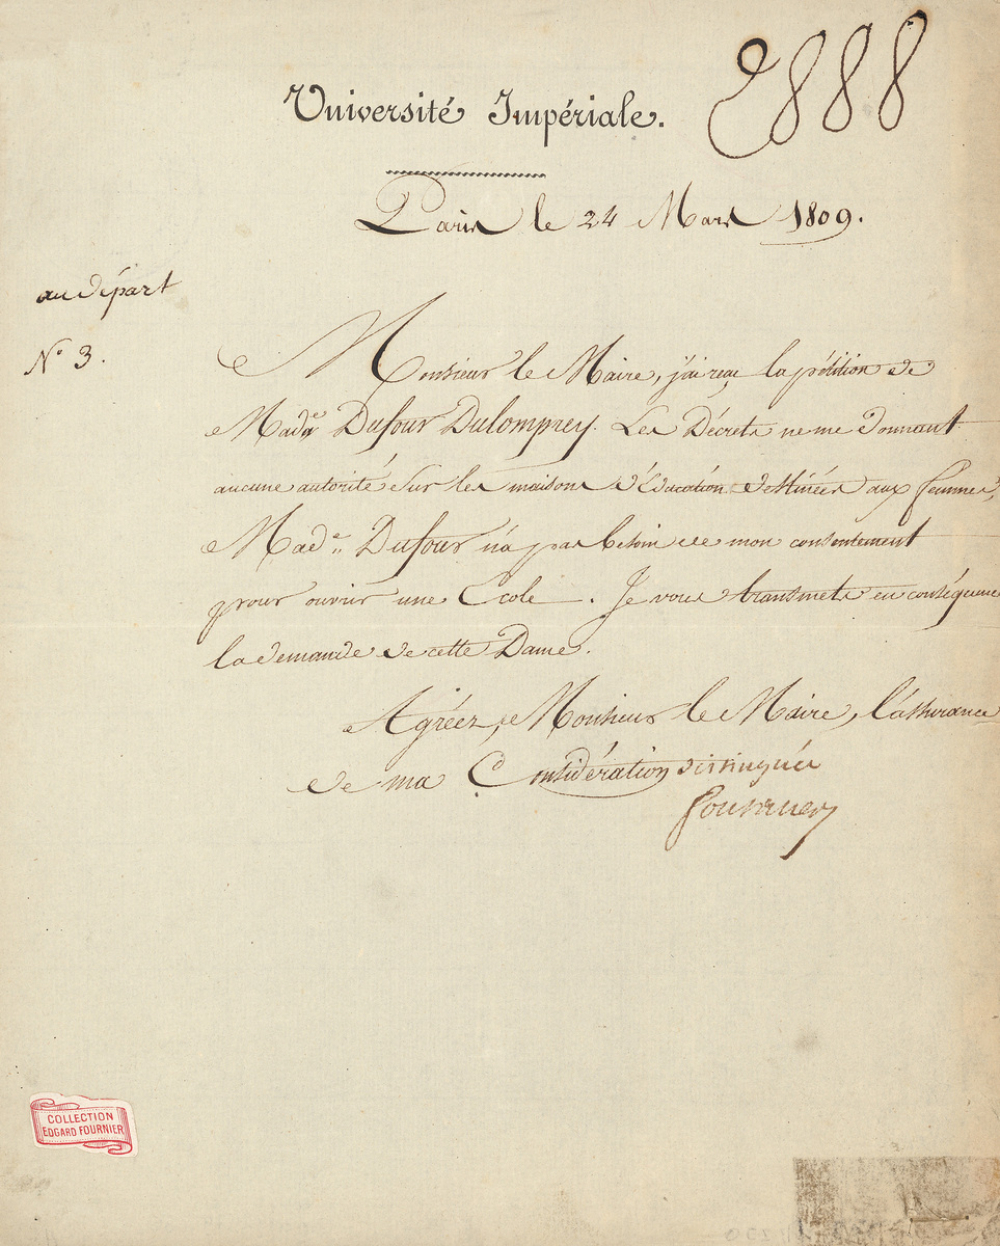 2888
Université Impériale.
Paris le 24 Mars 1809.
au départ
N° 3.
Monsieur le Maire, j'ai reçu la pétition de
Made Dufour Dulomprey. Les Décrets ne me donnant
aucune autorité sur les maisons d'Education destinées aux femmes,
Made Dufour n'a pas besoin de mon consentement
pour ouvrir une Ecole. Je vous transmets en conséquence
la demande de cette Dame.
Agréez, Monsieur le Maire, l'assurance
de ma Considération distinguée
COLLECTION
EDGARD FOURNIER